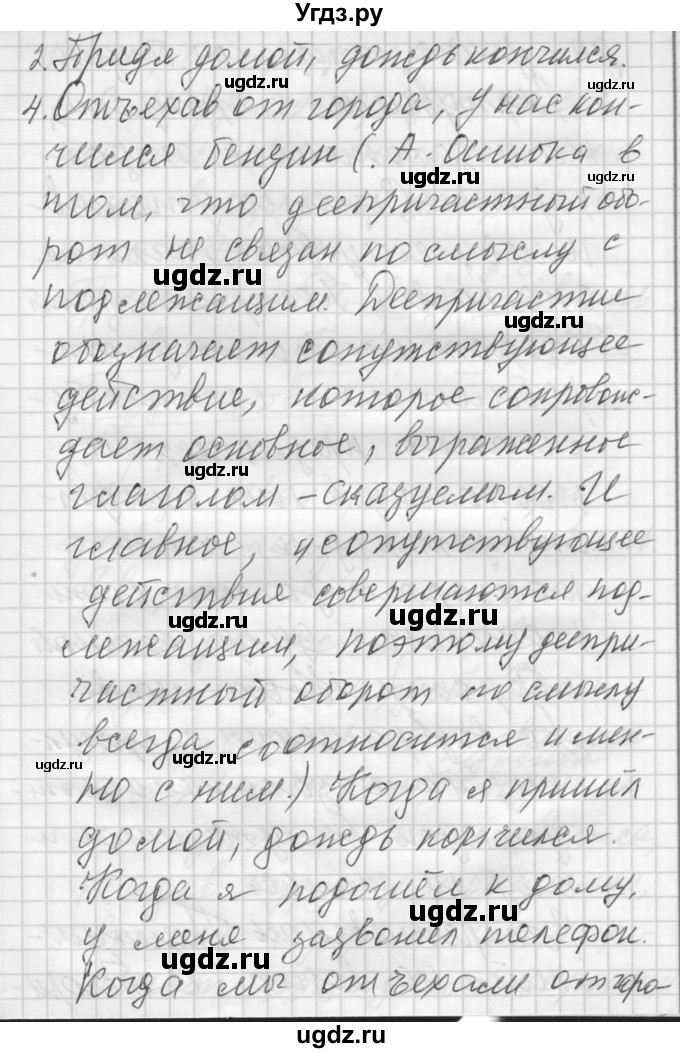 Угдз.ру
2. Придя домой, дождь кончился.
ugdz.ru ugdz.ru
4. Отъехав от города, у нас кон-
чился бензин (. А. Ошибка в
ugdz.ru ugdz.ru
том, что деепричастный обо-
рот не связан по смыслу с
ugdz.ru
подлежащим. Деепричастие
ugdz.ru
обозначает сопутствующее
действие, которое сопровож-
дает основное, выраженное
ugdz.ru
глаголом - сказуемым. И
главное, и сопутствующее
действия совершаются под-
ugdz.ru ugdz.ru
лежащим, поэтому деепри-
частный оборот по смыслу
всегда соотносится имен-
ugdz.ru
но с ним.) Когда я пришёл
домой, дождь кончился.
Когда я подошёл к дому,
ugdz.ru
у меня зазвонил телефон.
ugdz.ru
Когда мы отъехали от горо-
ugdz.ru